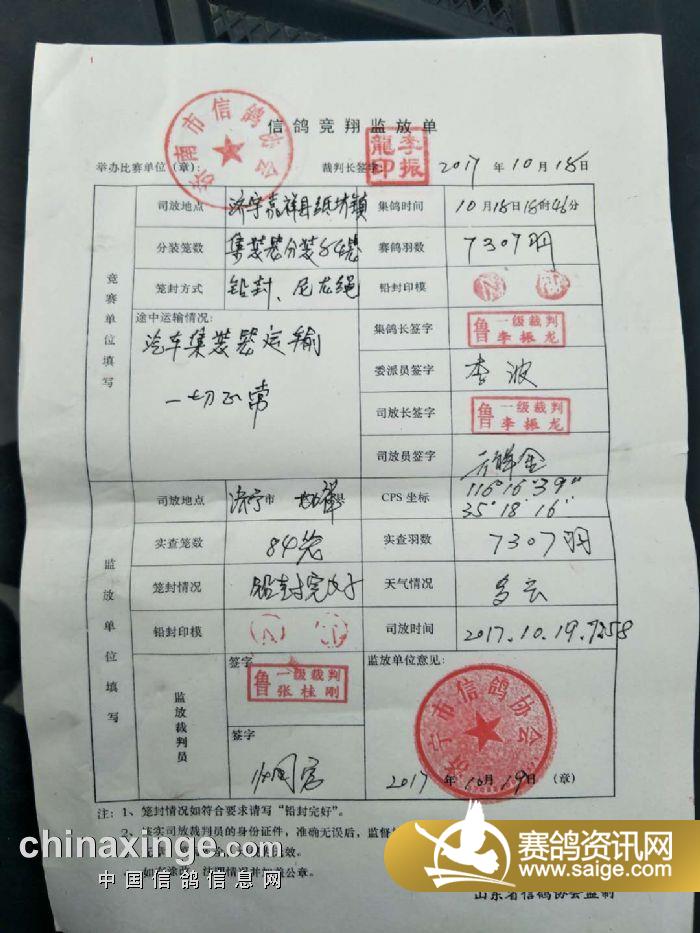 信鸽竞翔监放单
济南市信鸽协会
举办比赛单位(章):
裁判长签字:
李振龍印
2017 年 10 月 18 日
竞赛单位填写
司放地点 济宁嘉祥县纸坊镇 集鸽时间 10月18日18时46分
分装笼数 集装器分装84笼 赛鸽羽数 7307羽
笼封方式 铅封、尼龙绳 铅封印模
途中运输情况: 集鸽长签字 鲁 一级裁判 李振龙
汽车集装器运输 委派员签字 李波
一切正常 司放长签字 鲁 一级裁判 李振龙
司放员签字
监放单位填写
司放地点 济宁市 嘉祥县 CPS 坐标 116°16′39″
35°18′16″
实查笼数 84笼 实查羽数 7307羽
笼封情况 铅封完好 天气情况 多云
铅封印模 司放时间 2017.10.19.7:58
监放裁判员
签字 监放单位意见:
鲁 一级裁判 张桂刚
济宁市信鸽协会
签字
2017 年 10 月 19 日 (章)
注: 1、笼封情况如符合要求请写“铅封完好”。
2、核实司放裁判员的身份证件,准确无误后,监督
chinaxinge.com
中国信鸽信息网
赛鸽资讯网
www.saige.com
山东省信鸽协会监制